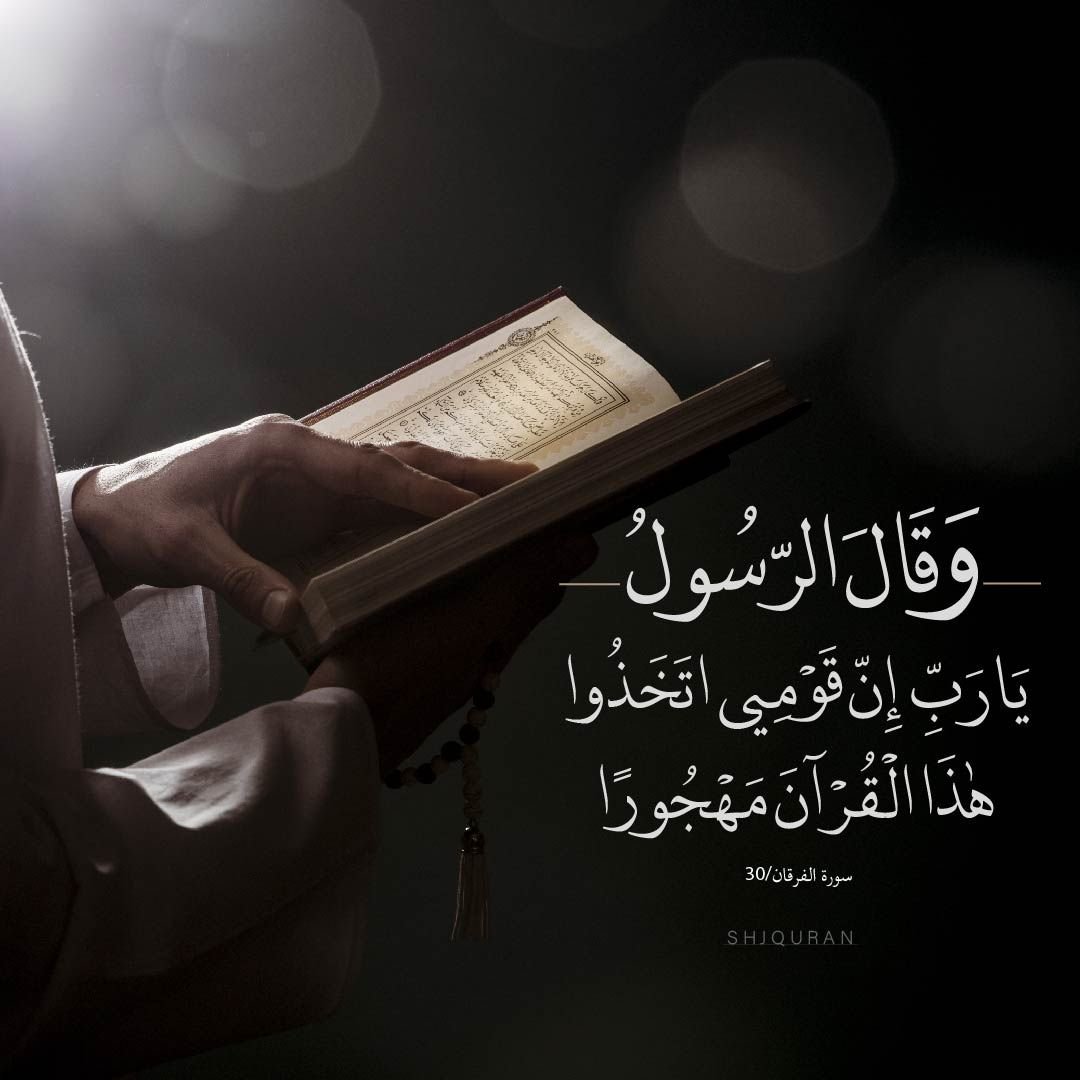 وَقَالَ الرّسُولُ
يَا رَبِّ إِنّ قَوْمِيي اتَخَذُوا
هٰذَا الْقُرْآنَ مَهْجُورًا
سورة الفرقان/30
SHJQURAN